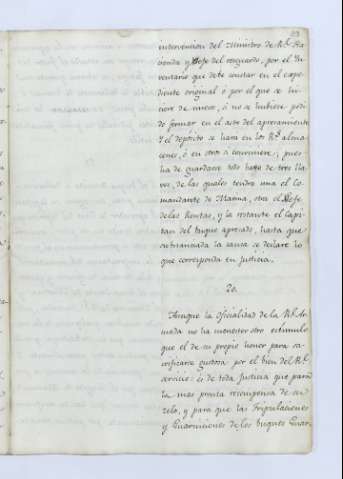 intervencion del Ministro de Rl. Ha-
cienda y Gefe del resguardo, por el In-
ventario que debe constar en el expe-
diente original ó por el que se hi-
ciere de nuevo, si no se hubiere podi-
do formar en el acto del apresamiento
y el depósito se hará en los Rs. alma-
cenes, ó en otros si conviniere; pues
ha de guardarse todo bajo de tres lla-
ves, de las quales tendra una el Co-
mandante de Marina, otra el Gefe
de las Rentas, y la restante el Capi-
tan del buque apresado, hasta que
substanciada la causa se declare lo
que corresponda en Justicia.
20.
Aunque la Oficialidad de la Rl. Ar-
mada no ha menester otro estimulo
que el de su propio honor para sa-
crificarse gustosa por el bien del Rl.
servicio: és de toda Justicia que para
la mas pronta recompensa de su
zelo, y para que las Tripulaciones
y Guarniciones de los buques Guar-